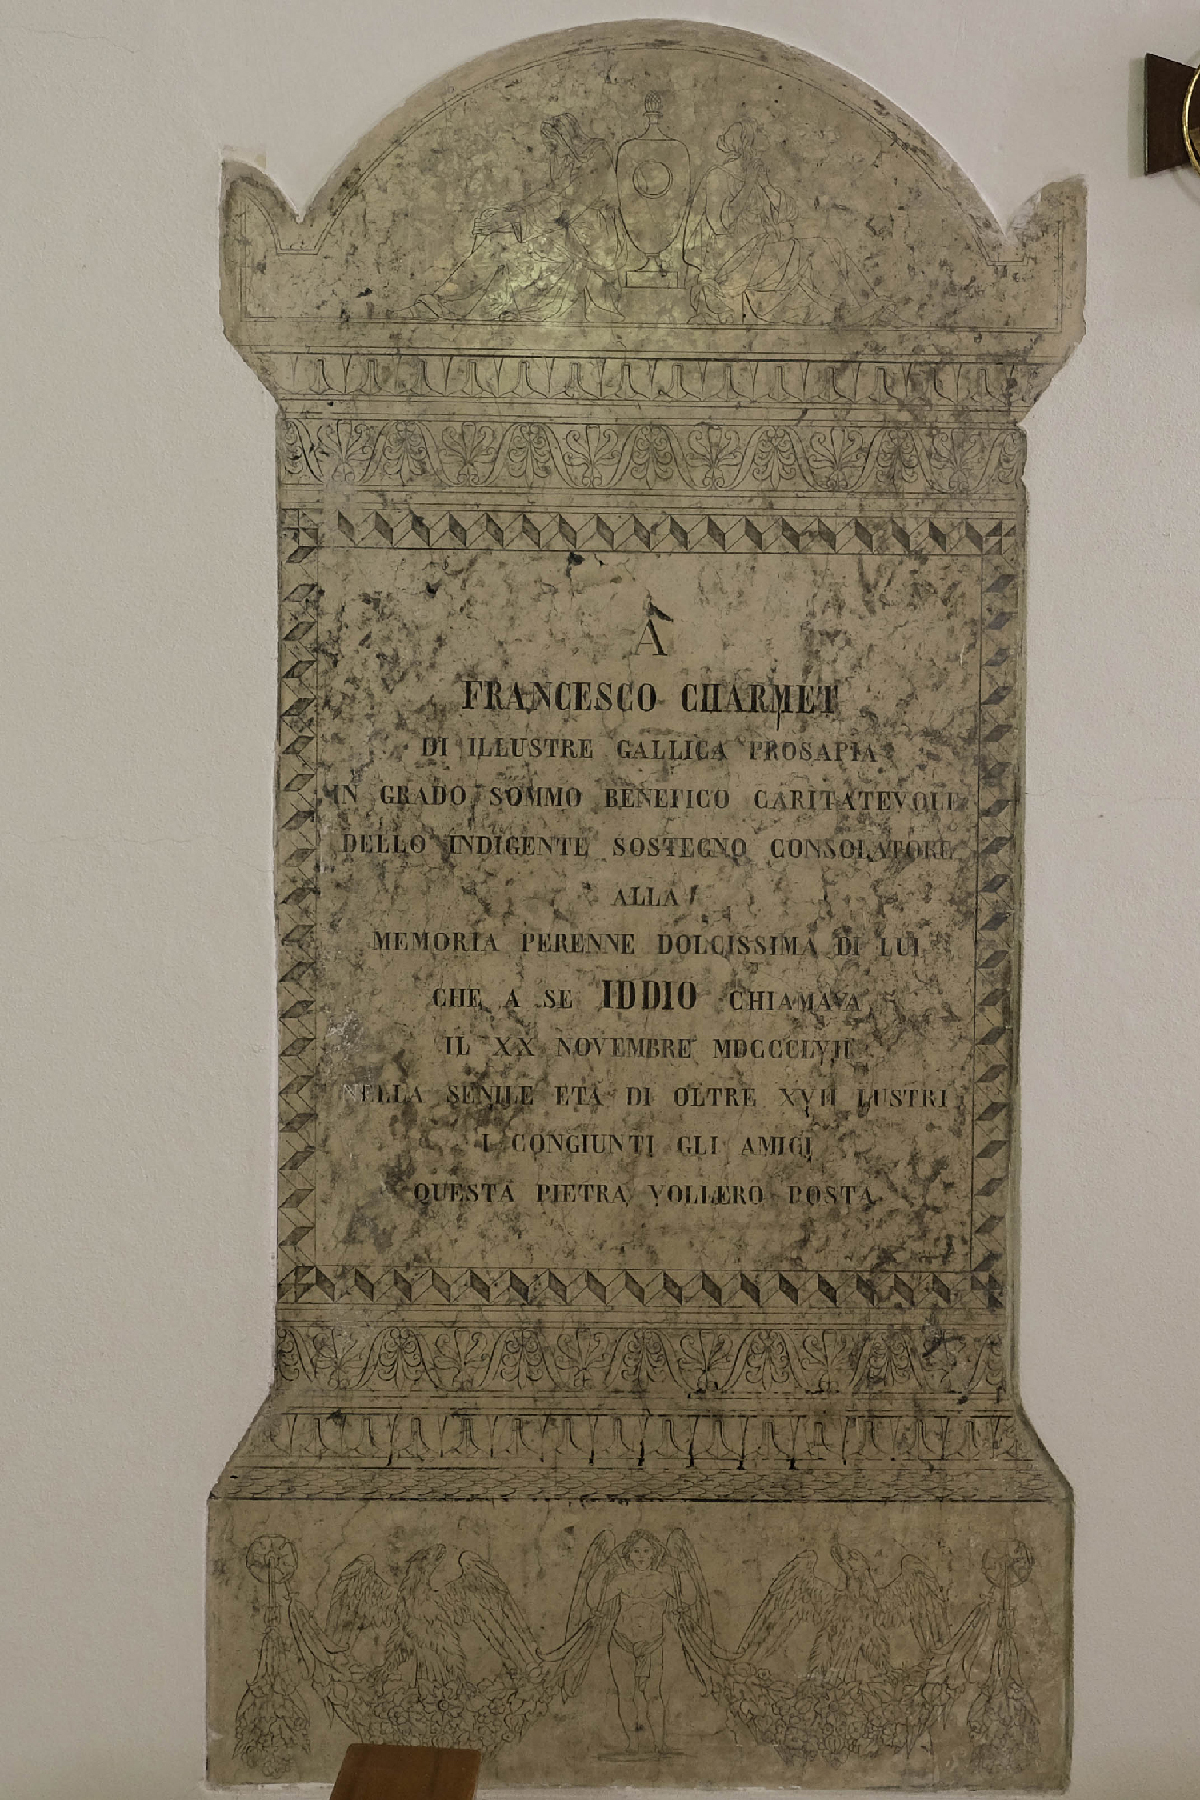 A
FRANCESCO CHARMET
DI ILLUSTRE GALLICA PROSAPIA
IN GRADO SOMMO BENEFICO CARITATEVOLE
DELLO INDIGENTE SOSTEGNO CONSOLATORE
ALLA
MEMORIA PERENNE DOLCISSIMA DI LUI
CHE A SE IDDIO CHIAMAVA
IL XX NOVEMBRE MDCCCLVII
NELLA SENILE ETÀ DI OLTRE XVII LUSTRI
I CONGIUNTI GLI AMICI
QUESTA PIETRA VOLLERO POSTA